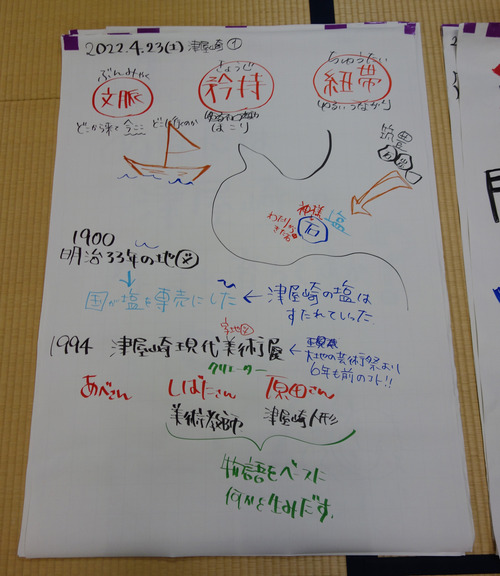 2022.4.23(土) 津屋崎①
ぶんみゃく
文脈
どこから来て今ここ どこへ行くのか
きょうじ
矜持
ほこり
ちゅうたい
紐帯
ゆるいつながり
筑豊
神様
塩
石
1900
明治33年の地図
国が塩を専売にした ← 津屋崎の塩は
すたれていった
1994 津屋崎現代美術展
大地の芸術祭より
6年も前のコト!!
クリエーター
あべさん しばたさん 原田さん
美術教師 津屋崎人形
物語をベースに
何かを生みだす。